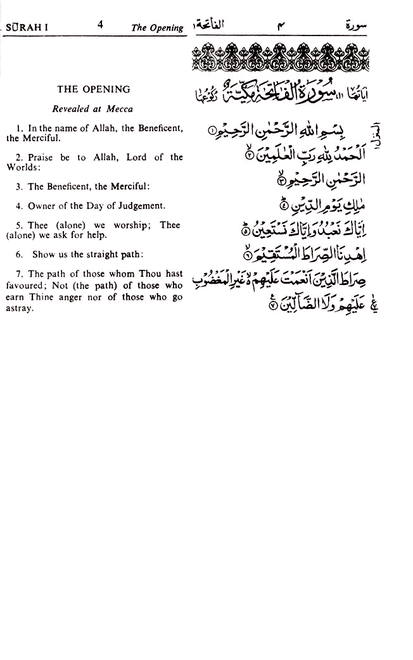 SŪRAH I 4 The Opening
الفاتحة ١ ٤ سورة
THE OPENING
Revealed at Mecca
1. In the name of Allah, the Beneficent,
the Merciful.
2. Praise be to Allah, Lord of the
Worlds:
3. The Beneficent, the Merciful:
4. Owner of the Day of Judgement.
5. Thee (alone) we worship; Thee
(alone) we ask for help.
6. Show us the straight path:
7. The path of those whom Thou hast
favoured; Not (the path) of those who
earn Thine anger nor of those who go
astray.
سُوْرَةُ الْفَاتِحَةِ مَكِّيَّةٌ
بِسْمِ اللهِ الرَّحْمٰنِ الرَّحِيْمِ ۝١
اَلْحَمْدُ لِلّٰهِ رَبِّ الْعٰلَمِيْنَ ۝٢
الرَّحْمٰنِ الرَّحِيْمِ ۝٣
مٰلِكِ يَوْمِ الدِّيْنِ ۝٤
اِيَّاكَ نَعْبُدُ وَاِيَّاكَ نَسْتَعِيْنُ ۝٥
اِهْدِنَا الصِّرَاطَ الْمُسْتَقِيْمَ ۝٦
صِرَاطَ الَّذِيْنَ اَنْعَمْتَ عَلَيْهِمْ ەۙ غَيْرِ الْمَغْضُوْبِ
عَلَيْهِمْ وَلَا الضَّآلِّيْنَ ۝٧